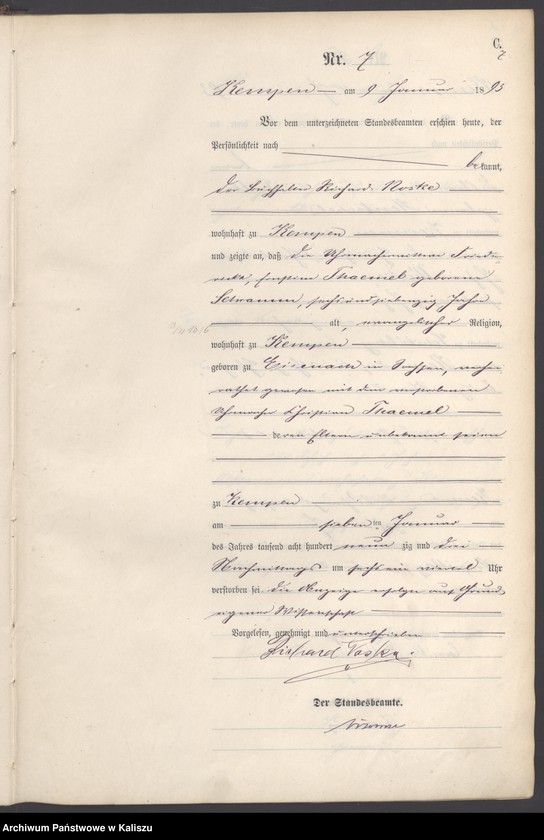 C.
7
Nr. 7
Kempen am 9 Januar 1893
Vor dem unterzeichneten Standesbeamten erschien heute, der
Persönlichkeit nach bekannt,
der Buchhalter Richard Noske
wohnhaft zu Kempen
und zeigte an, daß die Uhrmacherwittwe Friede-
ricke, Ernstine Thaemel geborene
Schramm, sechsundsiebenzig Jahre
alt, evangelischer Religion,
wohnhaft zu Kempen
geboren zu Eisenach in Sachsen, verhei-
rathet gewesen mit dem verstorbenen
Uhrmacher Christian Thaemel
deren Eltern unbekannt seien
zu Kempen
am siebenten Januar
des Jahres tausend acht hundert neunzig und drei
Nachmittags um sechs ein viertel Uhr
verstorben sei. Die Anzeige erfolge auf Grund
eigener Wissenschaft
Vorgelesen, genehmigt und unterschrieben
Richard Noske.
Der Standesbeamte.
Archiwum Państwowe w Kaliszu